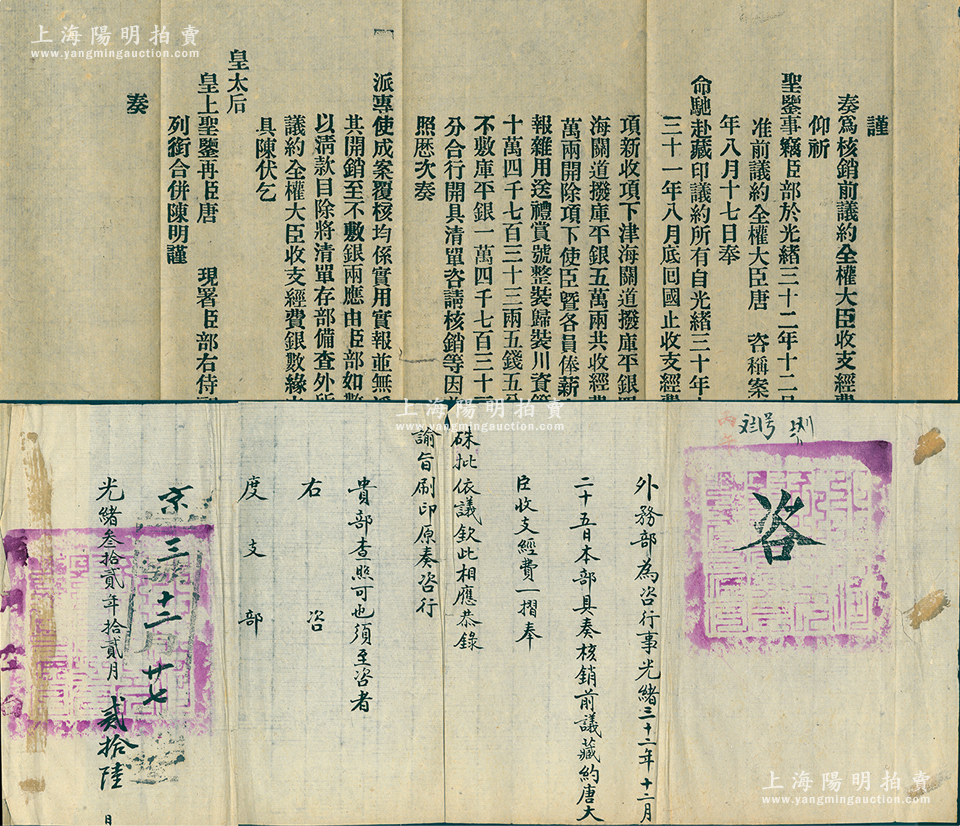 上海陽明拍賣
www.yangmingauction.com
上海陽明拍賣
www.yangmingauction.com
謹
奏爲核銷前議約全權大臣收支經費
仰祈
聖鑒事竊臣部於光緒三十二年十二月
准前議約全權大臣唐 咨稱案
年八月十七日奉
命馳赴藏印議約所有自光緒三十年
三十一年八月底囘國止收支經費
項新收項下津海關道撥庫平銀
海關道撥庫平銀五萬兩共收經費
萬兩開除項下使臣暨各員俸薪
報雜用送禮賞號整裝歸裝川資等
十萬四千七百三十三兩五錢五分
不敷庫平銀一萬四千七百三十三
分合行開具清單咨請核銷等因
照歷次奏
派專使成案覆核均係實用實報並無浮
其開銷至不敷銀兩應由臣部如數
以清款目除將清單存部備查外所
議約全權大臣收支經費銀數緣由
具陳伏乞
皇太后
皇上聖鑒再臣唐 現署臣部右侍
列銜合併陳明謹
奏
上海陽明拍賣
www.yangmingauction.com
咨
外務部為咨行事光緒三十二年十二月
二十五日本部具奏核銷前議藏約唐大
臣收支經費一摺奉
硃批依議欽此相應恭錄
諭旨刷印原奏咨行
貴部查照可也須至咨者
右咨
度支部
京三十二 廿七
光緒叁拾貳年拾貳月貳拾陸日
上海陽明拍賣
www.yangmingauction.com